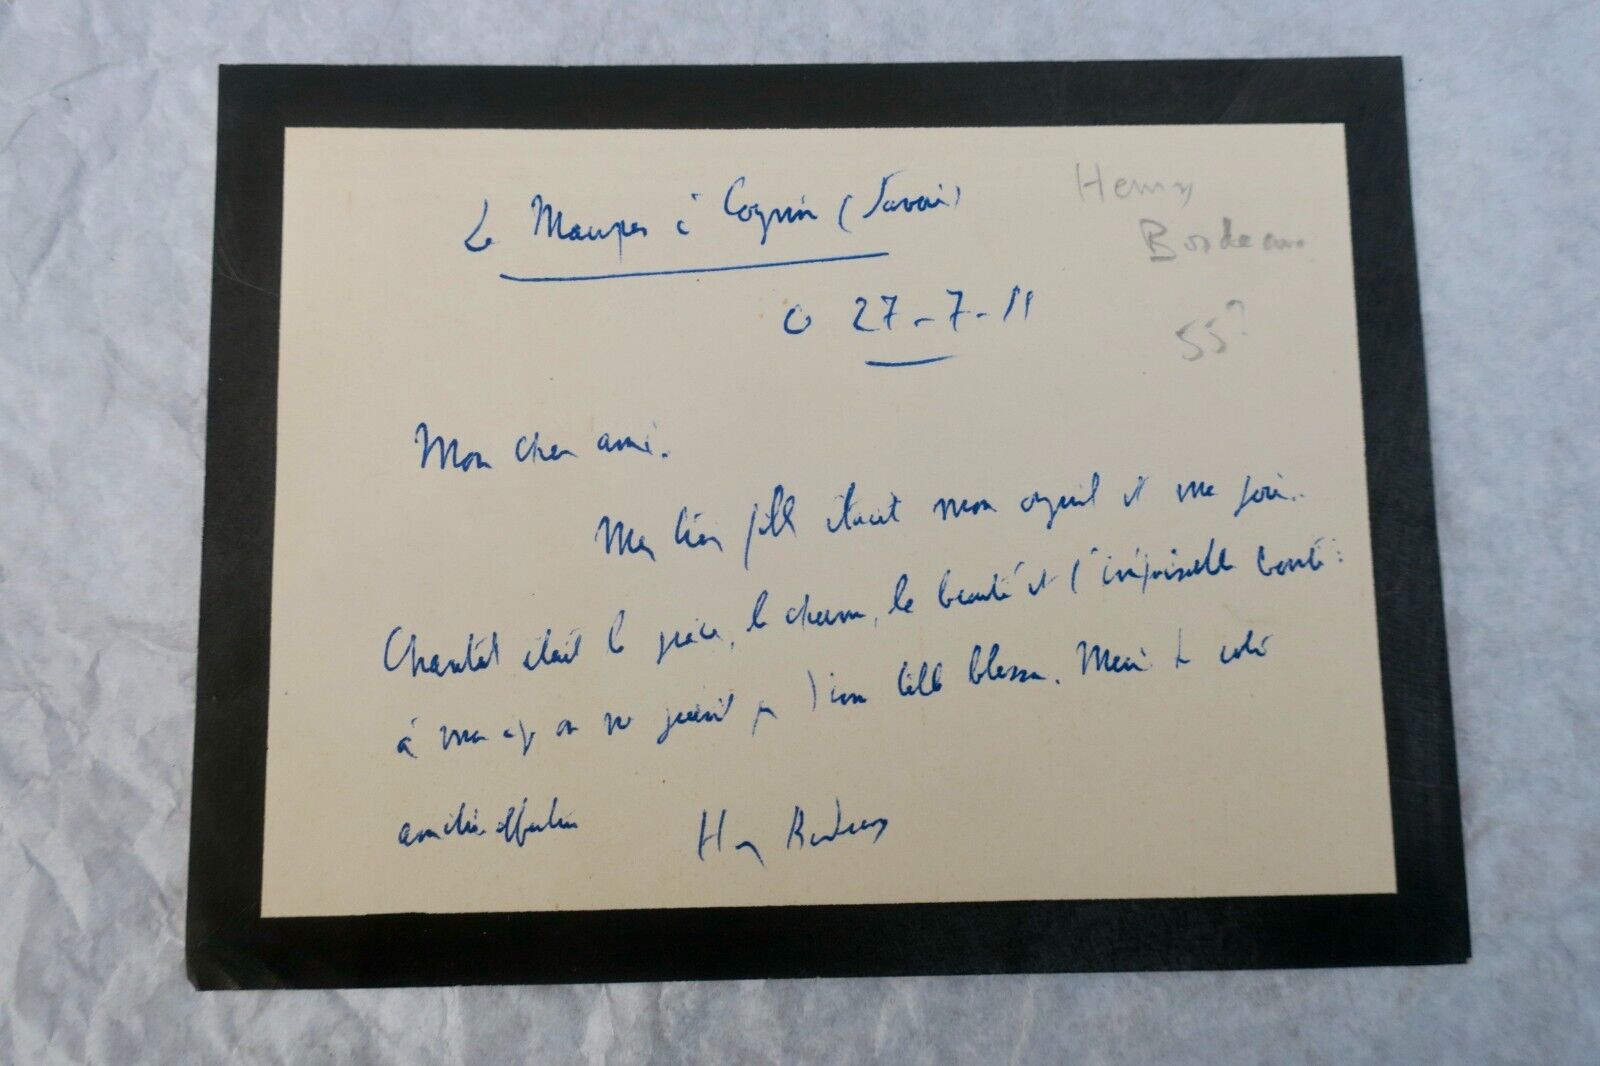 Le Maupas à Cognin (Savoie)
Henry
Bordeaux
27-7-
55
Mon cher ami.
Mes trois filles étaient mon orgueil et ma joie.
Chantal était la grâce, le charme, la beauté et l'inépuisable bonté :
à mon âge on ne guérit pas d'une telle blessure. Merci de votre
amitié affectueuse
Henry Bordeaux